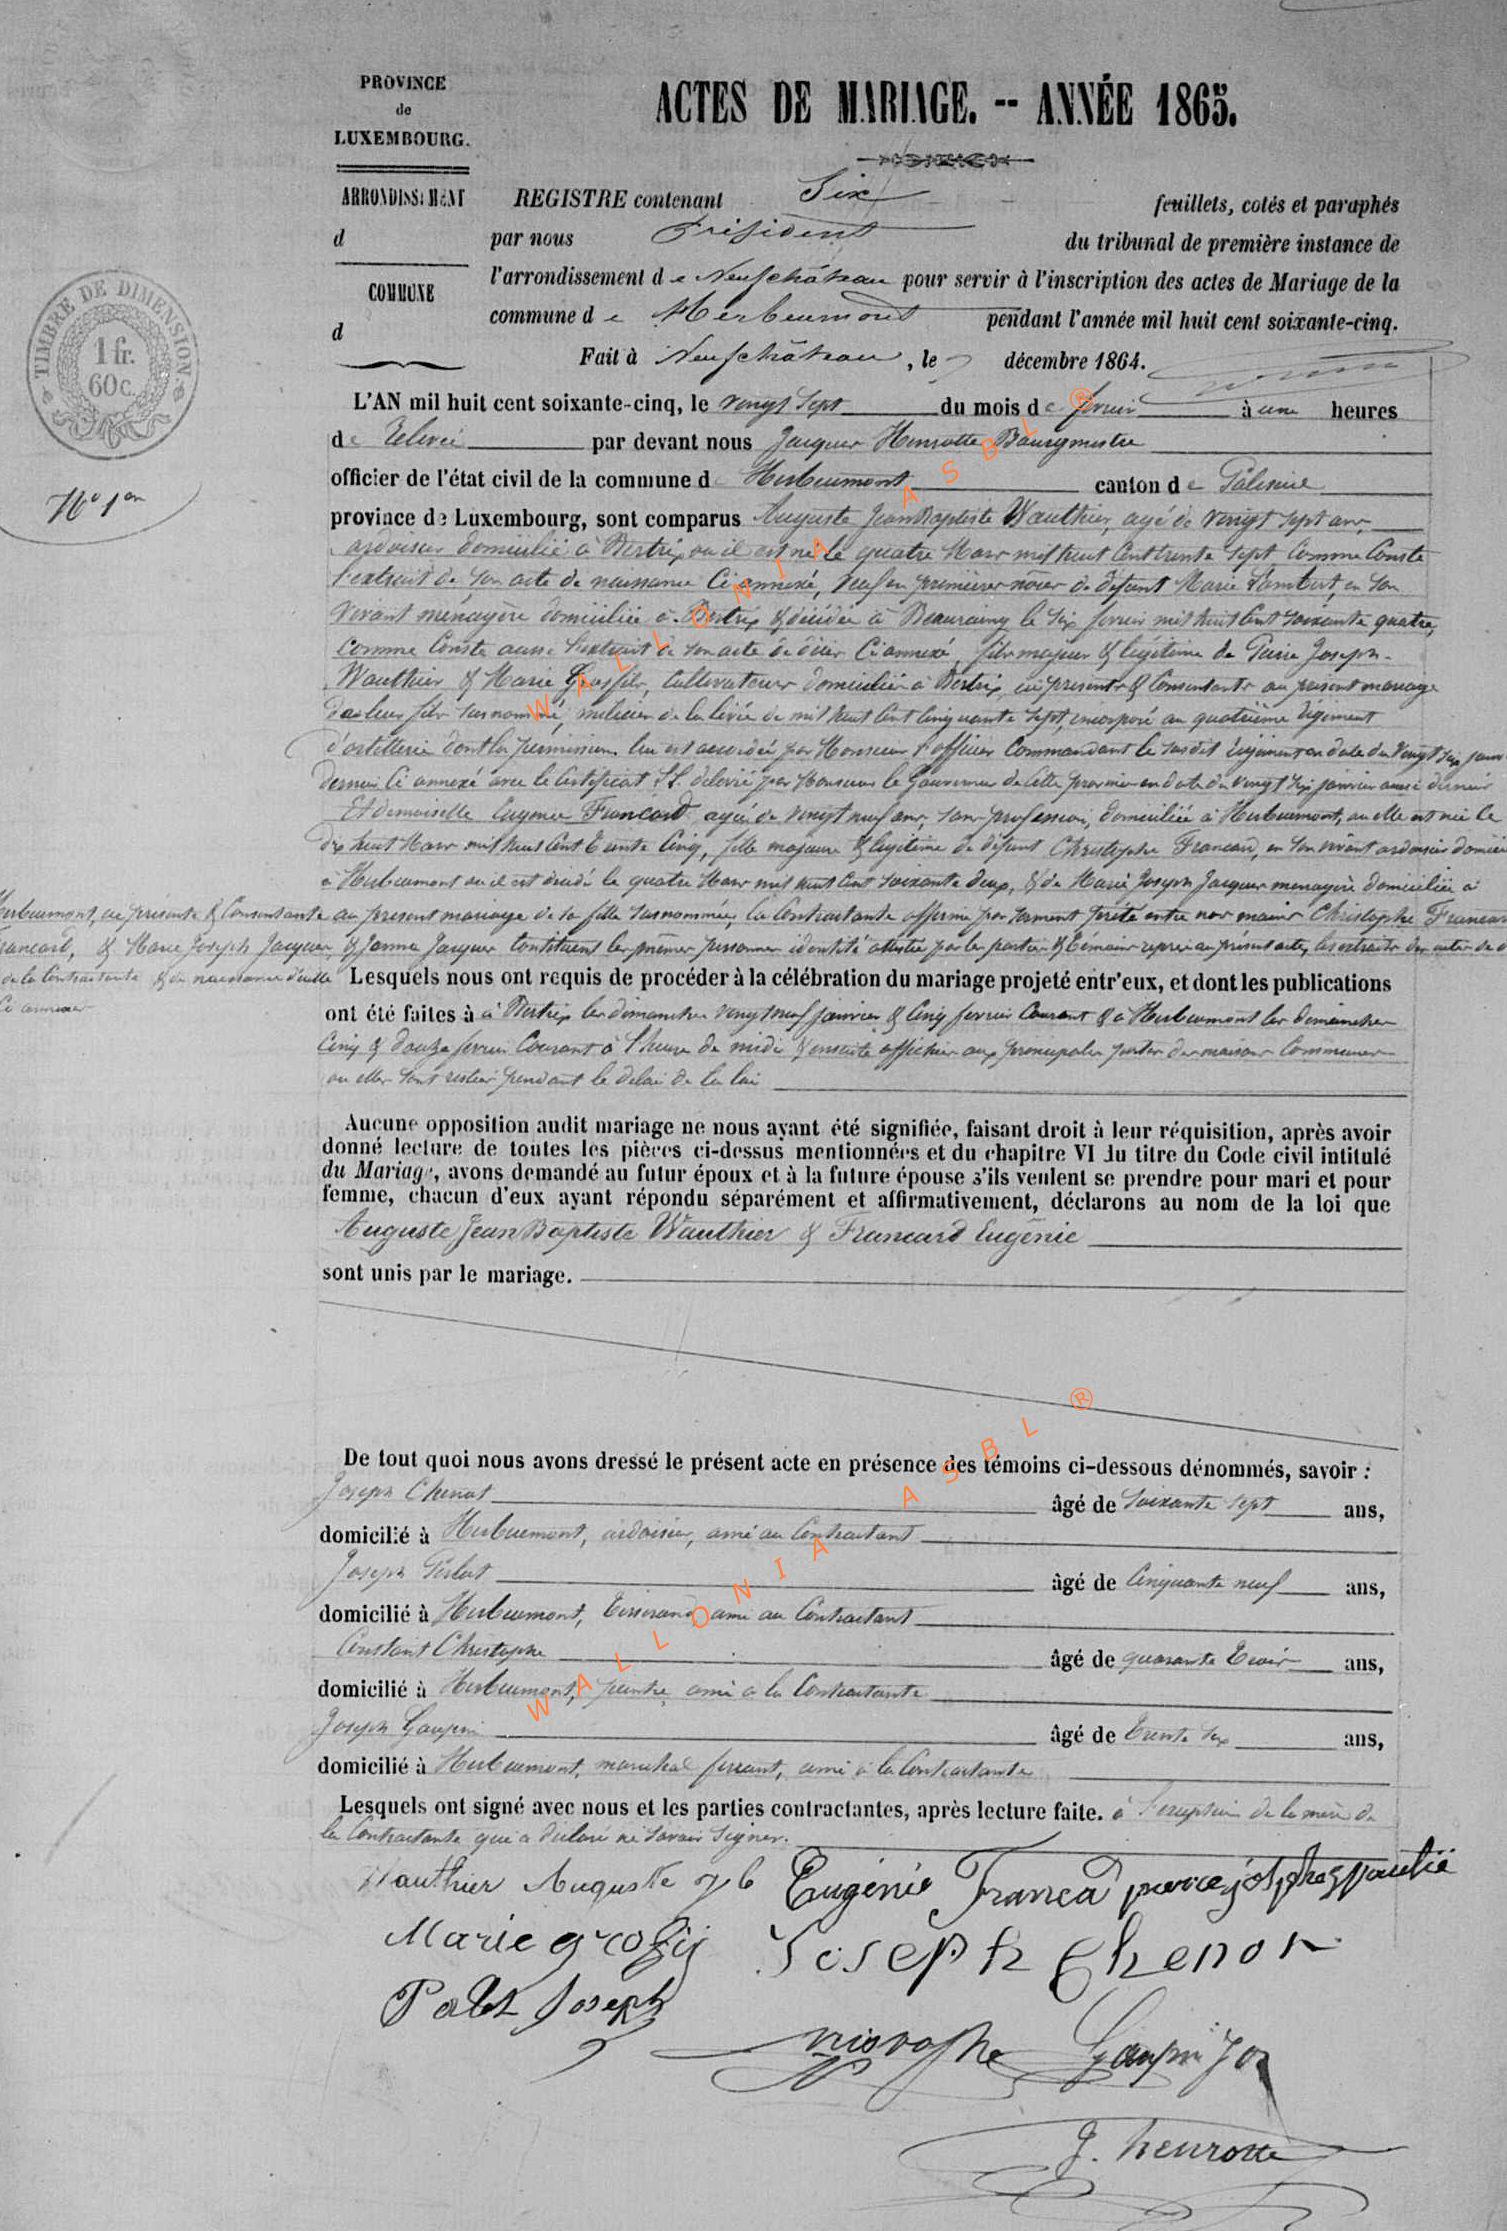 PROVINCE
de
LUXEMBOURG.
ARRONDISSEMENT
d
COMMUNE
d
TIMBRE DE DIMENSION
1 fr.
60 c.
No 1er
ACTES DE MARIAGE. -- ANNÉE 1865.
REGISTRE contenant Six feuillets, cotés et paraphés
par nous Président du tribunal de première instance de
l'arrondissement de Neufchâteau pour servir à l'inscription des actes de Mariage de la
commune de Herbeumont pendant l'année mil huit cent soixante-cinq.
Fait à Neufchâteau, le décembre 1864.
L'AN mil huit cent soixante-cinq, le vingt sept du mois de fevrier à une heures
de relevée par devant nous Jacques Henrotte Bourgmestre
officier de l'état civil de la commune de Herbeumont canton de Paliseul
province de Luxembourg, sont comparus Auguste Jean Baptiste Wauthier, agé de vingt sept ans,
ardoisier domicilié à Bertrix ou il est né le quatre Mars mil huit Cent trente sept Comme Conste
l'extrait de son acte de naissance Ci annexé, veuf en premières noces de défunt Marie Lambert, en son
vivant ménagère domiciliée à Bertrix & décédée à Beauraing le six fevrier mil huit Cent soixante quatre,
comme Conste aussi l'extrait de son acte de décès Ci annexé, fils majeur & légitime de Pierre Joseph
Wauthier & Marie Grosfils, Cultivateurs domiciliés à Bertrix, ici présents & Consentants au présent mariage
de leur fils susnommé, milicien de la levée de mil huit Cent Cinquante Sept, incorporé au quatrième régiment
d'artillerie dont la permission lui est accordée par Monsieur l'officier Commandant le susdit régiment en date du vingt six janvier
dernier Ci annexé avec le Certificat délivré par Monsieur le Gouverneur de Cette province en date du vingt six janvier aussi dernier
Et demoiselle Eugenie Francard agée de vingt neuf ans, sans profession, domiciliée à Herbeumont, ou elle est née le
dix huit Mars mil huit Cent trente Cinq, fille majeure & légitime de défunt Christophe Francard, en son vivant ardoisier domicilié
à Herbeumont ou il est décédé le quatre Mars mil huit Cent soixante deux, & de Marie Joseph Jacques ménagère domiciliée à
Herbeumont, ici présente & Consentante au présent mariage de sa fille susnommée, la Contractante affirme par serment prêté entre nos mains Christophe Francard
Francard, & Marie Joseph Jacques, & Jacques Constituent les mêmes personnes identité attestée par les parties & témoins repris au présent acte, les extraits des actes de
de la Contractante & de naissance d'icelle
Ci annexés
Lesquels nous ont requis de procéder à la célébration du mariage projeté entr'eux, et dont les publications
ont été faites à à Bertrix les dimanches vingt neuf janvier & Cinq fevrier Courant & à Herbeumont les dimanches
Cinq & douze fevrier Courant à l'heure de midi & ensuite affichées aux principales portes des maisons Communes
ou elles sont restées pendant le délai de la loi
Aucune opposition audit mariage ne nous ayant été signifiée, faisant droit à leur réquisition, après avoir
donné lecture de toutes les pièces ci-dessus mentionnées et du chapitre VI du titre du Code civil intitulé
du Mariage, avons demandé au futur époux et à la future épouse s'ils veulent se prendre pour mari et pour
femme, chacun d'eux ayant répondu séparément et affirmativement, déclarons au nom de la loi que
Auguste Jean Baptiste Wauthier & Francard Eugénie
sont unis par le mariage.
De tout quoi nous avons dressé le présent acte en présence des témoins ci-dessous dénommés, savoir :
Joseph Chenot âgé de soixante sept ans,
domicilié à Herbeumont, ardoisier, ami au Contractant
Joseph âgé de Cinquante neuf ans,
domicilié à Herbeumont, tisserand ami au Contractant
Constant Christophe âgé de quarante trois ans,
domicilié à Herbeumont, peintre, ami à la Contractante
Joseph Goupin âgé de trente six ans,
domicilié à Herbeumont, maréchal ferrant, ami à la Contractante
Lesquels ont signé avec nous et les parties contractantes, après lecture faite. à l'exception de la mère de
la Contractante qui a déclaré ne savoir signer.
Wauthier Auguste J b Eugénie Franca
Marie Joseph Chenot
Joseph
Goupin Jos
J. henrotte
WALLONIA ASBL ®
WALLONIA ASBL ®